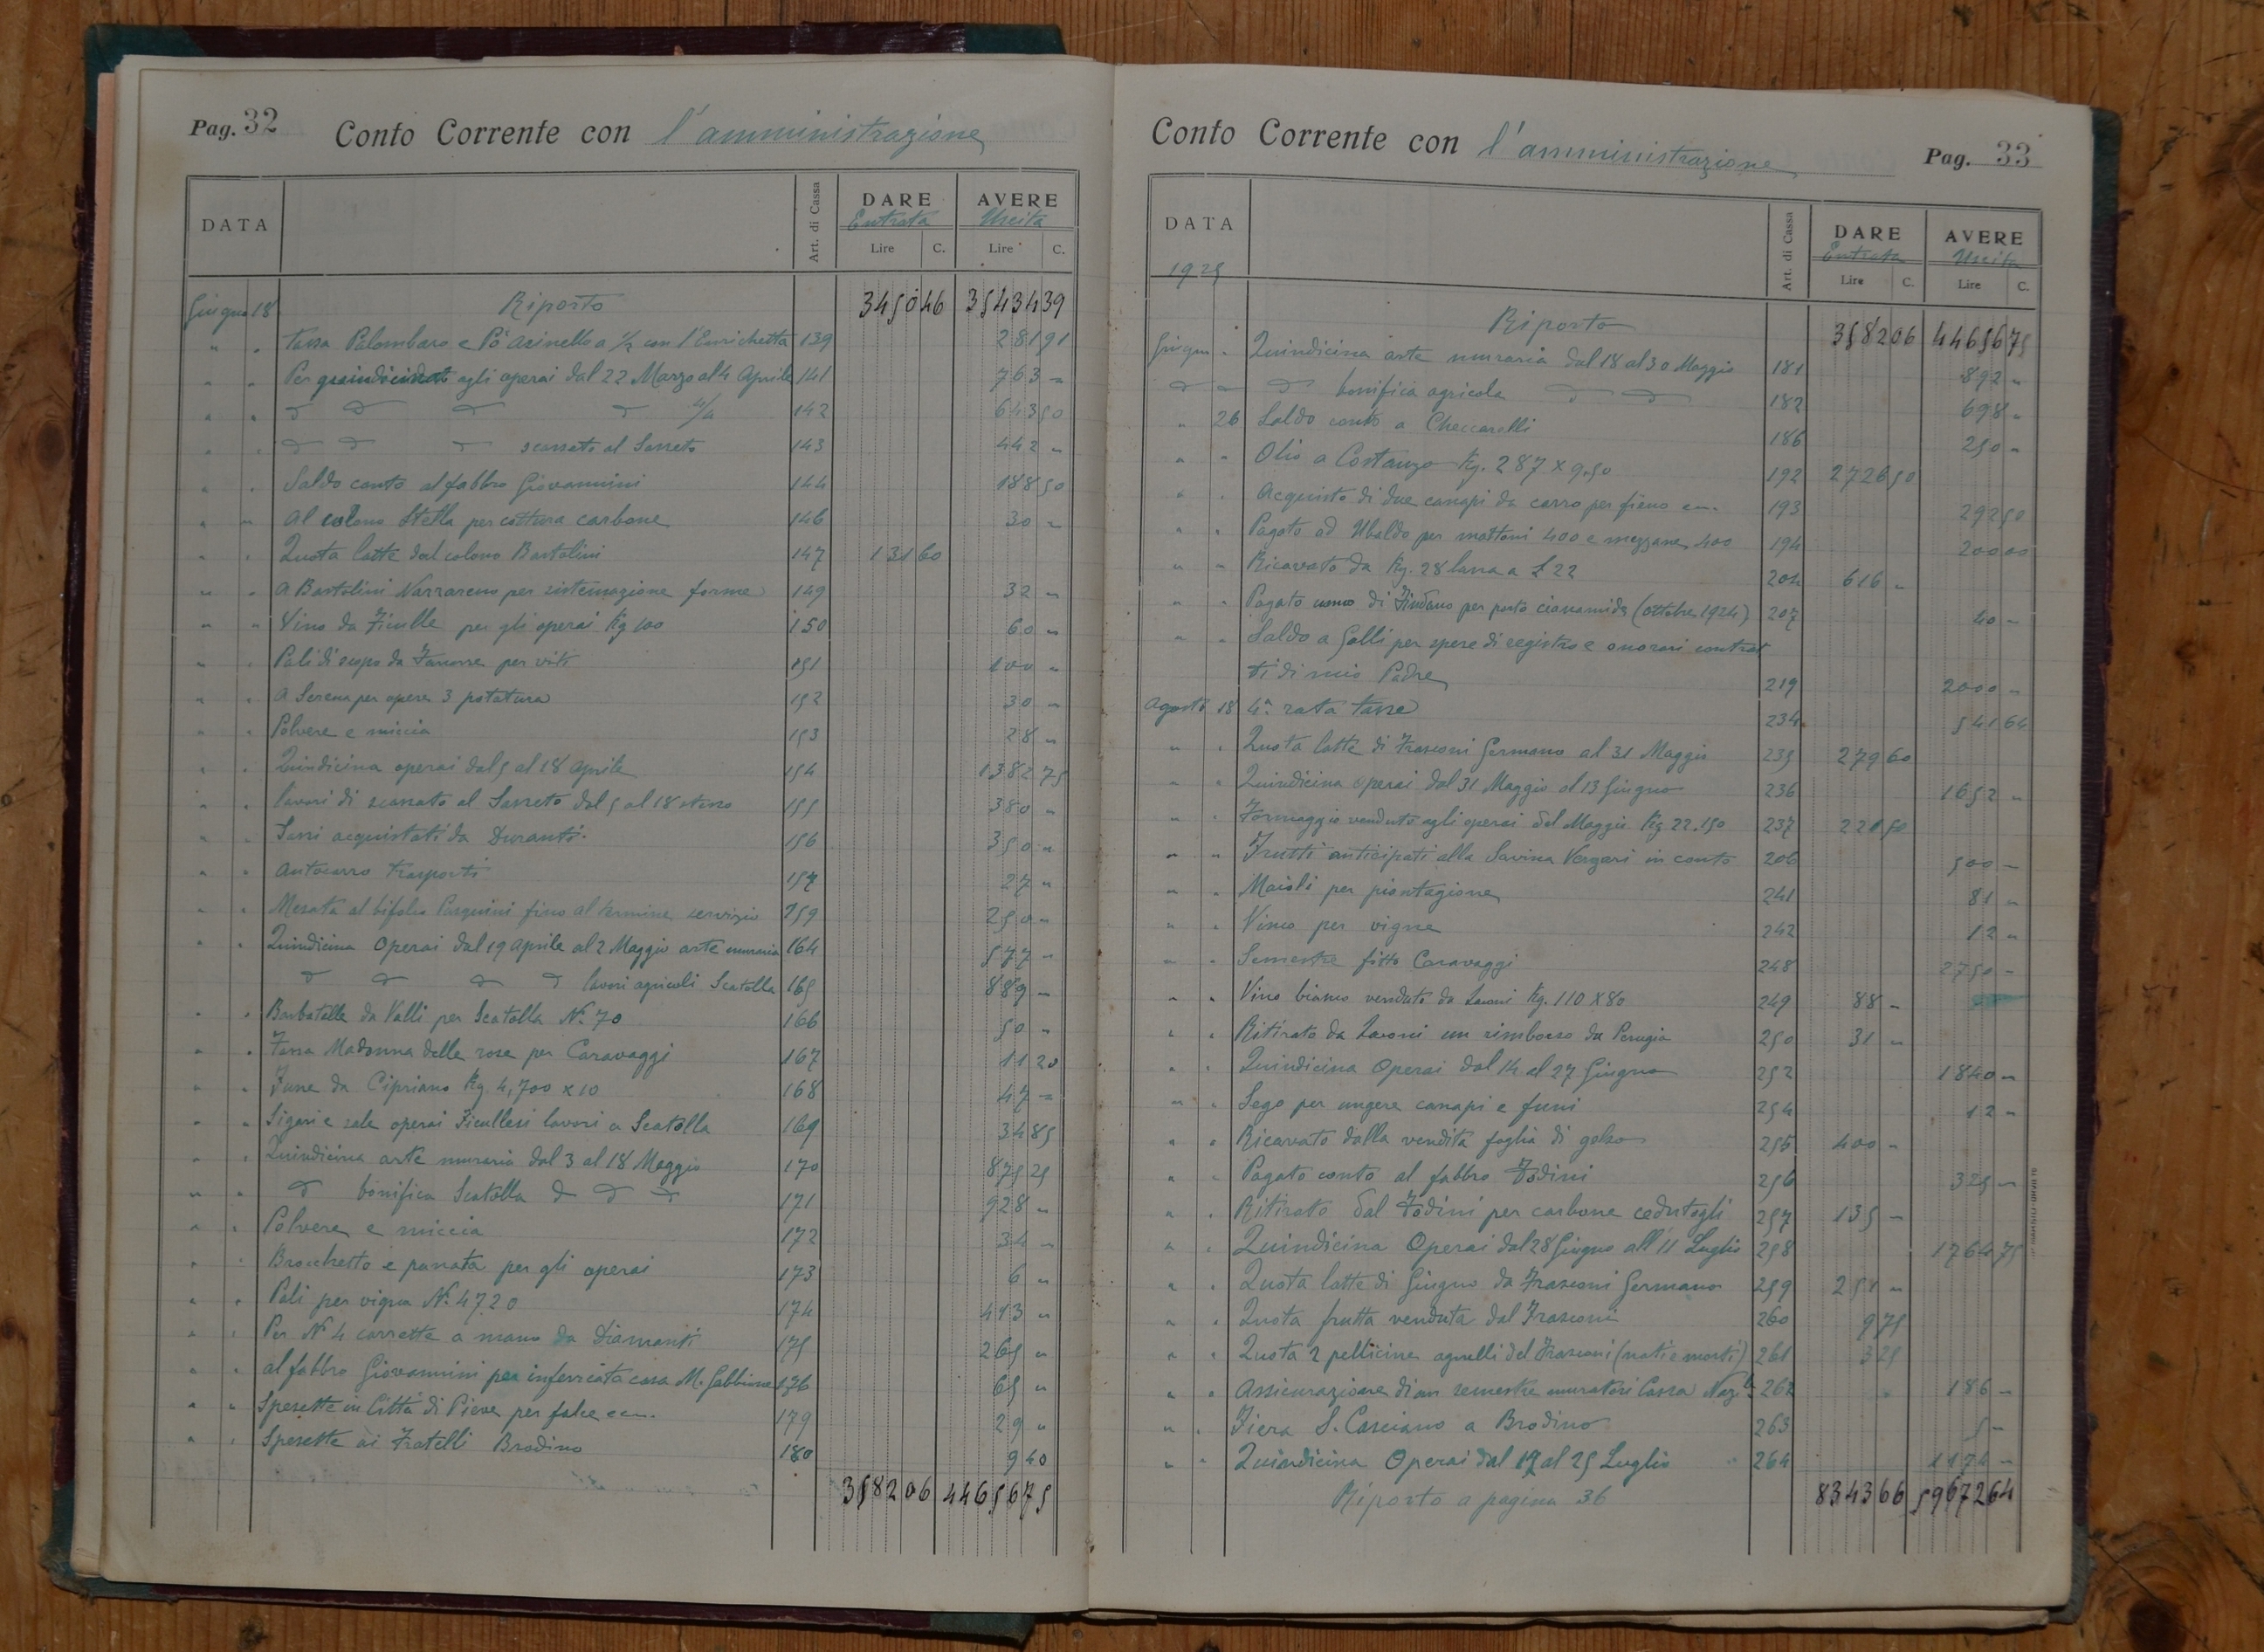 Pag. 32 Conto Corrente con l'amministrazione
DATA Art. di Cassa DARE AVERE
Entrata Uscita
Lire C. Lire C.
Giugno 18 Riporto 3450 46 35434 39
" " Tassa Palombaro e Pò Asinello a 1/2 con l'Enrichetta 139 281 91
" " Per quindicina agli operai dal 22 Marzo al 4 Aprile 141 763 "
" " 142 643 50
" " scassato al Sasseto 143 442 "
" " Saldo conto al fabbro Giovannini 144 188 50
" " Al colono Stella per cottura carbone 146 30 "
" " Quota latte dal colono Bartolini 147 131 60
" " A Bartolini Narrareno per sistemazione forme 149 32 "
" " Vino da Ficulle per gli operai Kg 100 150 60 "
" " Pali di da per viti 151 100 "
" " A Serena per opere 3 potatura 152 30 "
" " Polvere e miccia 153 28 "
" " Quindicina operai dal 5 al 18 Aprile 154 1382 75
" " lavori di scassato al Sasseto dal 5 al 18 stesso 155 380 "
" " Sassi acquistati da Duranti 156 350 "
" " Autocarro trasporti 157 27 "
" " Mesata al bifolco Pasquini fino al termine servizio 159 250 "
" " Quindicina Operai dal 19 Aprile al 2 Maggio arte muraria 164 577 "
lavori agricoli Scatolla 165 889 "
" " Barbatelle da Valli per Scatolla N. 70 166 50 "
" " Tassa Madonna delle rose per Caravaggi 167 11 20
" " Fune da Cipriano Kg 4,700 x 10 168 47 "
" " Sigari e sale operai Ficullesi lavori a Scatolla 169 34 85
" " Quindicina arte muraria dal 3 al 18 Maggio 170 875 25
" " bonifica Scatolla 171 928 "
" " Polvere e miccia 172 34 "
" " Brocchetto e panata per gli operai 173 6 "
" " Pali per vigna N. 4720 174 413 "
" " Per N 4 carrette a mano da Diamanti 175 265 "
" " al fabbro Giovannini per inferriata casa M. Gabbione 176 65 "
" " Spesette in Città di Pieve per falce ecc. 179 29 "
" " Spesette ai Fratelli Brodino 180 9 40
3582 06 44656 75
Conto Corrente con l'amministrazione Pag. 33
DATA Art. di Cassa DARE AVERE
Entrata Uscita
1925 Lire C. Lire C.
Riporto 3582 06 44656 75
Giugno " Quindicina arte muraria dal 18 al 30 Maggio 181 892 "
bonifica agricola 182 698 "
" 26 Saldo conto a Checcarelli 186 250 "
" " Olio a Costanzo Kg. 287 x 9.50 192 2726 50
" " Acquisto di due canapi da carro per fieno ecc. 193 292 50
" " Pagato ad Ubaldo per mattoni 400 e mezzane 400 194 200 00
" " Ricavato da Kg. 28 lana a £ 22 204 616 "
" " Pagato uomo di per porto cianamide (ottobre 1924) 207 40 "
" " Saldo a Galli per spese di registro e onorari contrat
ti di mio Padre 219 2000 "
Agosto 18 4ª rata tasse 234 541 64
" " Quota latte di Frasconi Germano al 31 Maggio 235 279 60
" " Quindicina operai dal 31 Maggio al 13 Giugno 236 1652 "
" " Formaggio venduto agli operai del Maggio Kg 22.150 237 221 50
" " Frutti anticipati alla Savina Vergari in conto 206 500 "
" " Maioli per piantagione 241 81 "
" " Vimo per vigne 242 12 "
" " Semestre fitto Caravaggi 248 2750 "
" " Vino bianco venduto da Kg. 110 x 80 249 88 "
" " Ritirato da un rimborso da Perugia 250 31 "
" " Quindicina Operai dal 14 al 27 Giugno 252 1840 "
" " Sego per ungere canapi e funi 254 12 "
" " Ricavato dalla vendita foglia di gelso 255 400 "
" " Pagato conto al fabbro Fodini 256 325 "
" " Ritirato dal Fodini per carbone cedutogli 257 135 "
" " Quindicina Operai dal 28 Giugno all'11 Luglio 258 1764 75
" " Quota latte di Giugno da Frasconi Germano 259 251 "
" " Quota frutta venduta dal Frasconi 260 9 75
" " Quota 2 pellicine agnelli del Frasconi (nati e morti) 261 3 25
" " Assicurazione di un semestre muratori Cassa Naz.le 262 186 "
" " Fiera S. Casciano a Brodino 263 5 "
" " Quindicina Operai dal 12 al 25 Luglio 264 1174 "
Riporto a pagina 36 8343 66 59672 64